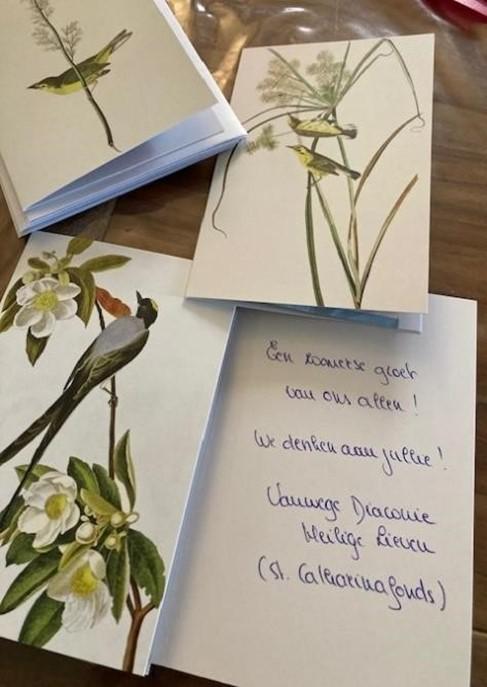 Een zomerse groet
van ons allen!
We denken aan jullie!
Vanwege Diaconie
Heilige Lieven
(St. Catharinafonds)